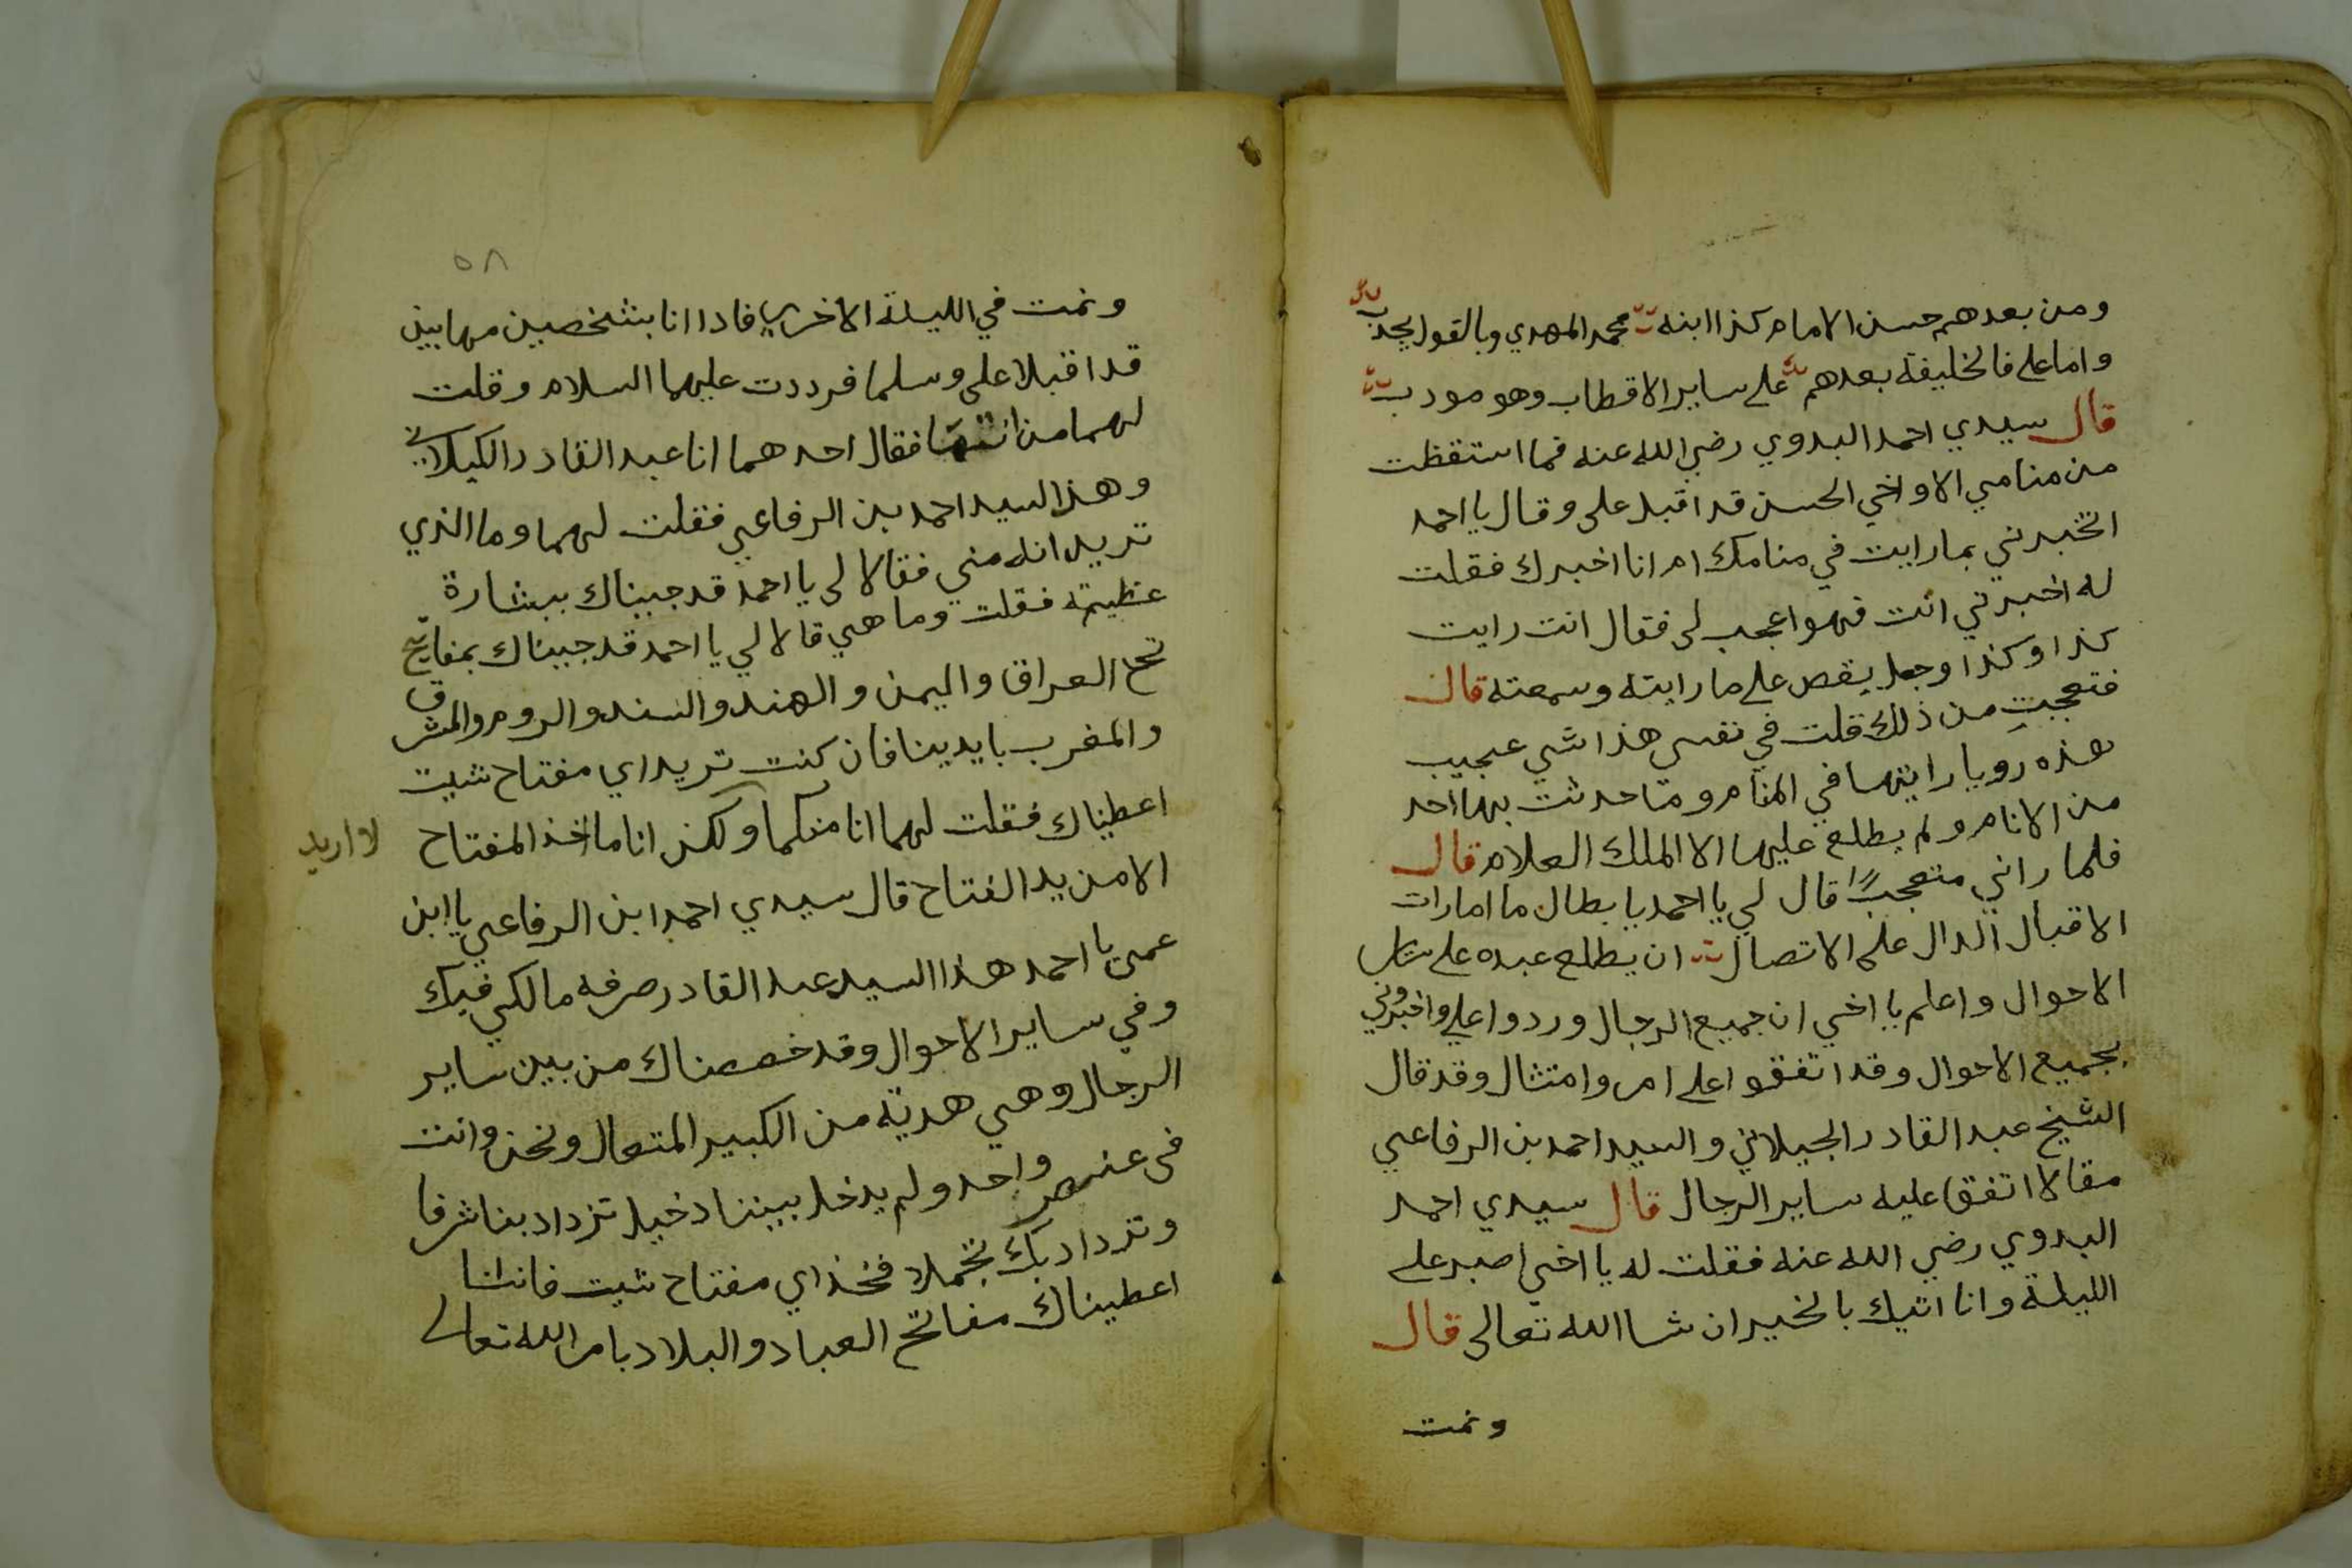 ومن بعدهم حسن الامام كذا ابنه محمد المهدي وبالقول يجذب
واما على فالخليفة بعدهم على ساير الاقطاب وهو مودب
قال سيدي احمد البدوي رضي الله عنه فما استقظت
من منامي الا واخي الحسن قد اقبل على وقال يا احمد
اتخبرني بما رايت في منامك ام انا اخبرك فقلت
له اخبرني انت فهو اعجب لى فقال انت رايت
كذا وكذا وجعل يقص على ما رايته وسمعته قال
فتعجبت من ذلك وقلت في نفسى هذا شي عجيب
هذه رويا رايتها في المنام وما حدثت بها احد
من الانام ولم يطلع عليها الا الملك العلام قال
فلما راني متعجبا قال لي يا احمد يا بطال ما امارات
الاقبال الدال على الاتصال ان يطلع عبده على ساير
الاحوال واعلم يا اخي ان جميع الرجال وردوا علي واخبروني
بجميع الاحوال وقد اتفقوا على امر وامتثال وقد قال
الشيخ عبد القادر الجيلاني والسيد احمد بن الرفاعي
مقالا اتفق عليه ساير الرجال قال سيدي احمد
البدوي رضي الله عنه فقلت له يا اخي اصبر على
الليلة وانا اتيك بالخير ان شا الله تعالى قال
ونمت
٥٨
ونمت في الليلة الاخري فادا انا بشخصين مهابين
قد اقبلا على وسلما فرددت عليهما السلام وقلت
لهما من انتما فقال احدهما انا عبد القادر الكيلاني
وهذا السيد احمد بن الرفاعي فقلت لهما وما الذي
تريدانه مني فقالا لى يا احمد قد جيناك ببشارة
عظيمة فقلت وما هي قالا لي يا احمد قد جيناك بمفاتيح
العراق واليمن والهند والسند والروم والمشرق
والمغرب بايدينا فان كنت تريد اي مفتاح شيت
اعطيناك فقلت لهما انا منكما ولكن انا ما اخذ المفتاح
لا اريد
الا من يد الفتاح قال سيدي احمد ابن الرفاعي يا ابن
عمى يا احمد هذا السيد عبد القادر صرفه مالكي فيك
وفي ساير الاحوال وقد خصصناك من بين ساير
الرجال وهي هدية من الكبير المتعال ونحن وانت
فى عنصر واحد ولم يدخل بيننا دخيل تزداد بنا شرفا
وتزداد بك تجملا فخذ اي مفتاح شيت فاننا
اعطيناك مفاتح العباد والبلاد بامر الله تعالى